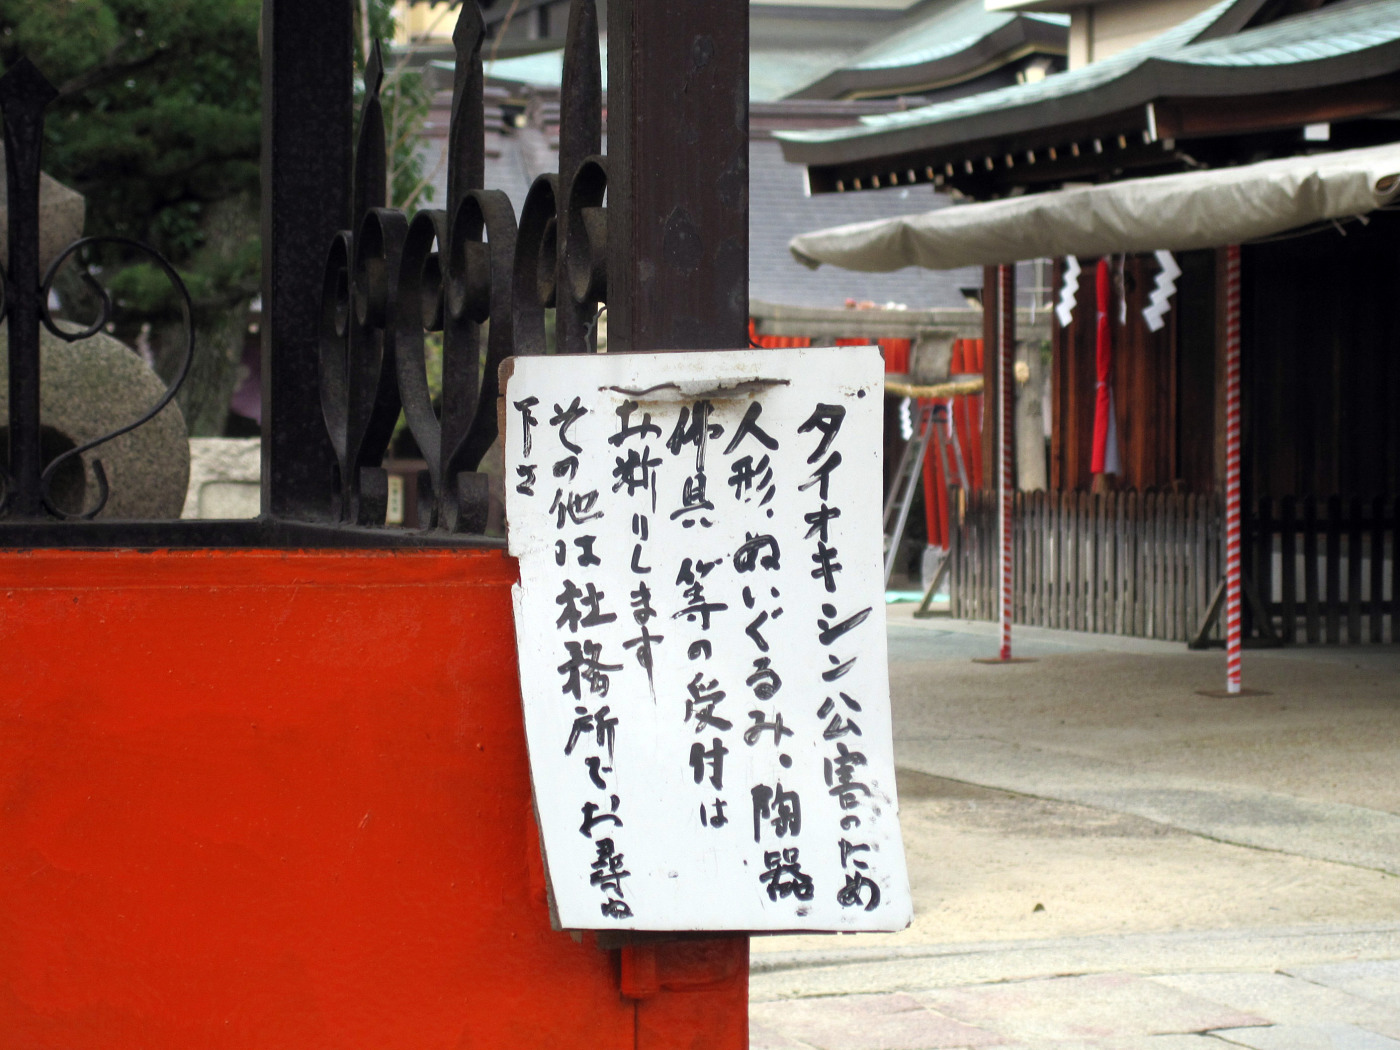 タイオキシン公害のため
人形、ぬいぐるみ・陶器
佛具等の受付は
お断りします
その他は社務所でお尋ぬ
下さ